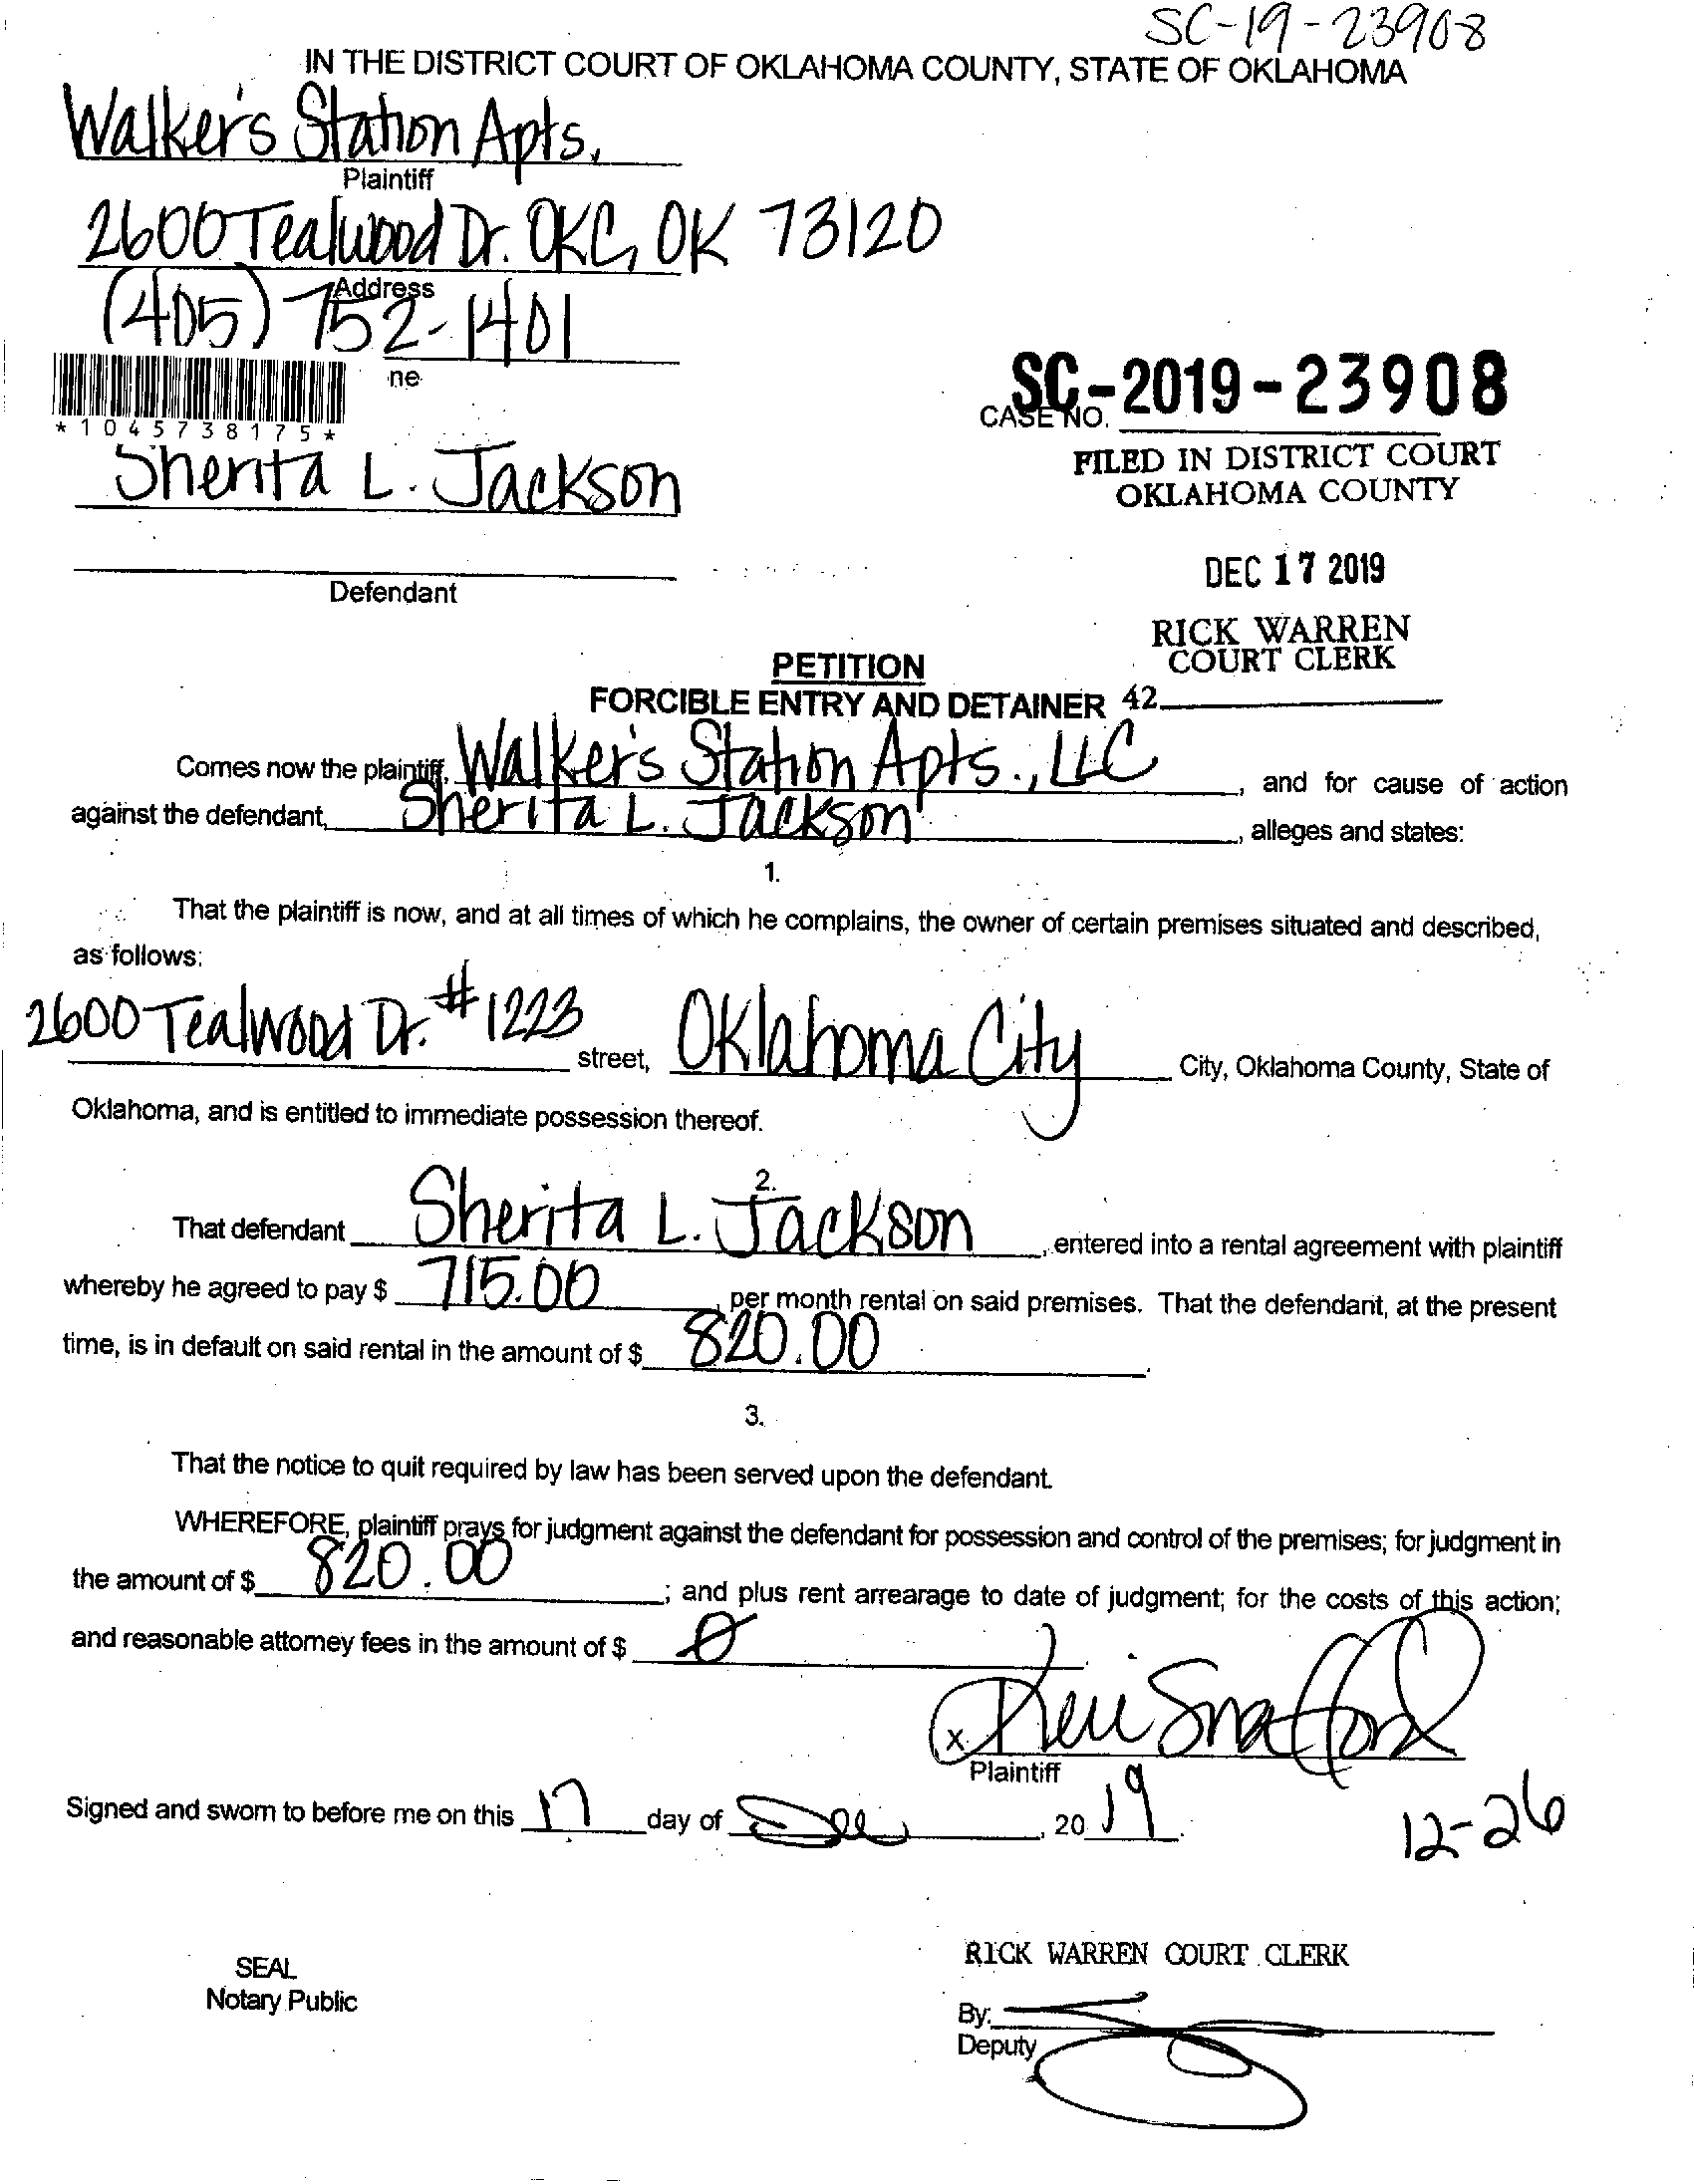 SC-19-23908
IN THE DISTRICT COURT OF OKLAHOMA COUNTY, STATE OF OKLAHOMA
Walker's Station Apts.
Plaintiff
2600 Tealwood Dr. OKC, OK 73120
Address
(405) 752-1401
ne
*1045738175*
SC-2019-23908
CASE NO.
Sherita L. Jackson
FILED IN DISTRICT COURT
OKLAHOMA COUNTY
Defendant
DEC 17 2019
RICK WARREN
COURT CLERK
PETITION
FORCIBLE ENTRY AND DETAINER 42
Comes now the plaintiff, Walker's Station Apts., LLC, and for cause of action
against the defendant, Sherita L. Jackson, alleges and states:
1.
That the plaintiff is now, and at all times of which he complains, the owner of certain premises situated and described,
as follows:
2600 Tealwood Dr. #1223 street, Oklahoma City City, Oklahoma County, State of
Oklahoma, and is entitled to immediate possession thereof.
2.
That defendant Sherita L. Jackson, entered into a rental agreement with plaintiff
whereby he agreed to pay $ 715.00, per month rental on said premises. That the defendant, at the present
time, is in default on said rental in the amount of $ 820.00.
3.
That the notice to quit required by law has been served upon the defendant.
WHEREFORE, plaintiff prays for judgment against the defendant for possession and control of the premises; for judgment in
the amount of $ 820.00; and plus rent arrearage to date of judgment; for the costs of this action;
and reasonable attorney fees in the amount of $ 0
x Keri Snafford
Plaintiff
Signed and sworn to before me on this 17 day of Dec, 2019.
12-26
SEAL
Notary Public
RICK WARREN COURT CLERK
By:
Deputy